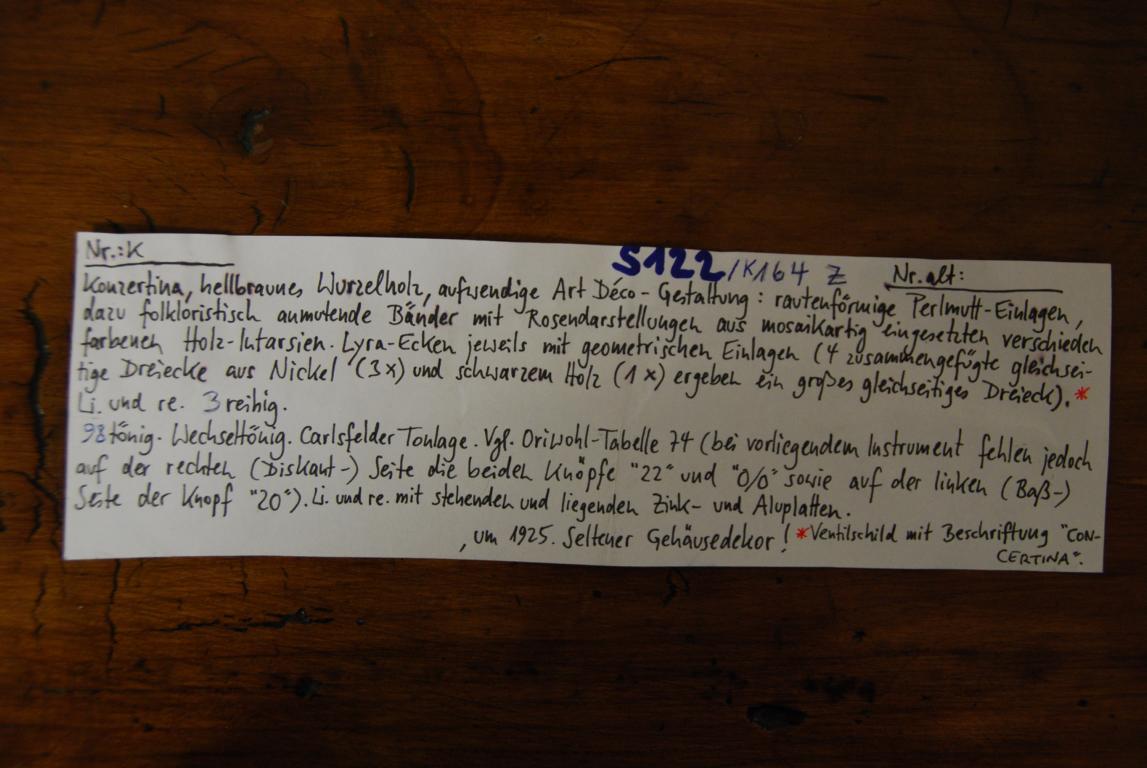 Nr.: K S122/K164 Z Nr. alt:
Konzertina, hellbraunes Wurzelholz, aufwendige Art Déco-Gestaltung: rautenförmige Perlmutt-Einlagen,
dazu folkloristisch anmutende Bänder mit Rosendarstellungen aus mosaikartig eingesetzten verschieden
farbenen Holz-Intarsien. Lyra-Ecken jeweils mit geometrischen Einlagen (4 zusammengefügte gleichsei-
tige Dreiecke aus Nickel (3x) und schwarzem Holz (1x) ergeben ein großes gleichseitiges Dreieck).*
Li. und re. 3reihig.
98tönig. Wechseltönig. Carlsfelder Tonlage. Vgl. Oriwohl-Tabelle 74 (bei vorliegendem Instrument fehlen jedoch
auf der rechten (Diskant-) Seite die beiden Knöpfe "22" und "0/0" sowie auf der linken (Baß-)
Seite der Knopf "20"). Li. und re. mit stehenden und liegenden Zink- und Aluplatten.
, um 1925. Seltener Gehäusedekor! *Ventilschild mit Beschriftung "CON-
CERTINA".